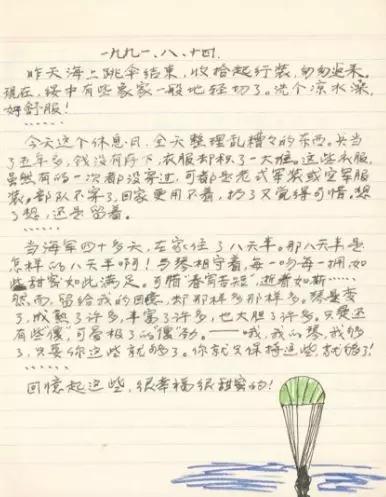 一九九一、八、十四.
昨天海上跳伞结束，收拾起行装，匆匆返来。
现在，绥中有些象家一般地轻切了。洗个凉水澡，
好舒服！
……
今天这个休息日，全天整理乱糟々的东西。兵当
了五年多，钱没有存下，衣服却积了一大堆。这些衣服，
虽然有的一次都没穿过，可都是老式军装或空军服
装。部队不穿了，回家更用不着，扔了又觉得可惜，想
了想，还是留着。
……
当海军四十多天，在家住了八天半。那八天半是
怎样的八天半啊！与琴相守着，每一吻每一拥如
此甜蜜如此满足。可惜"春宵苦短"，逝者如斯……
然而，留给我的回憶，却那样多那样多。琴是变
了，成熟了许多，丰富了许多，也大胆了许多。只是还
有些"傻"，可爱极了的"傻"劲。——哦，我的琴，我够
了，只要你这些就够了。你就只保持这些，就够了！
……
回憶起这些，很幸福很甜蜜的！